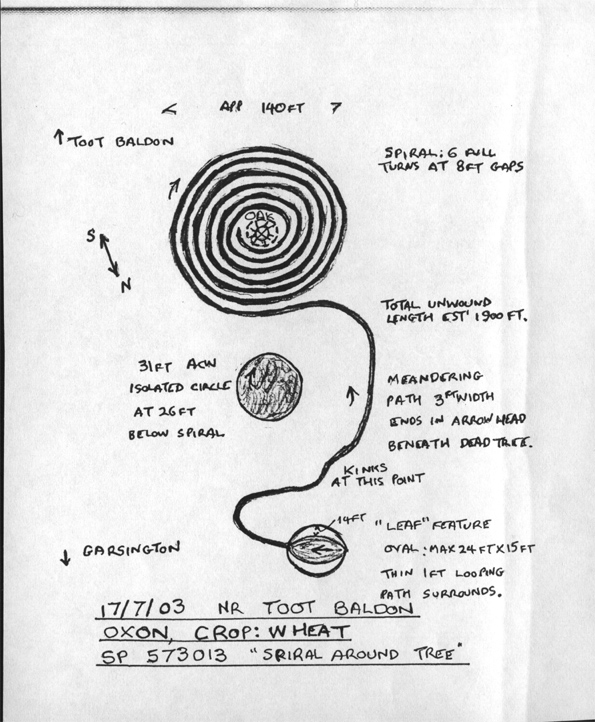 < APP 140FT >
↑ TOOT BALDON
SPIRAL: 6 FULL
TURNS AT 8FT GAPS
OAK
S
N
TOTAL UNWOUND
LENGTH EST' 1900 FT.
31FT ACW
ISOLATED CIRCLE
AT 26FT
BELOW SPIRAL
MEANDERING
PATH 3FT WIDTH
ENDS IN ARROW HEAD
BENEATH DEAD TREE.
KINKS
AT THIS POINT
14FT
"LEAF" FEATURE
OVAL: MAX 24FT X 15FT
THIN 1FT LOOPING
PATH SURROUNDS.
↓ GARSINGTON
17/7/03 NR TOOT BALDON
OXON, CROP: WHEAT
SP 573013 "SPIRAL AROUND TREE"